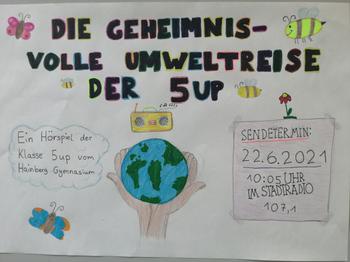 DIE GEHEIMNIS-
VOLLE UMWELTREISE
DER 5UP
Ein Hörspiel der
Klasse 5up vom
Hainberg Gymnasium
SENDETERMIN:
22.6.2021
10:05 UHR
IM STADTRADIO
107,1